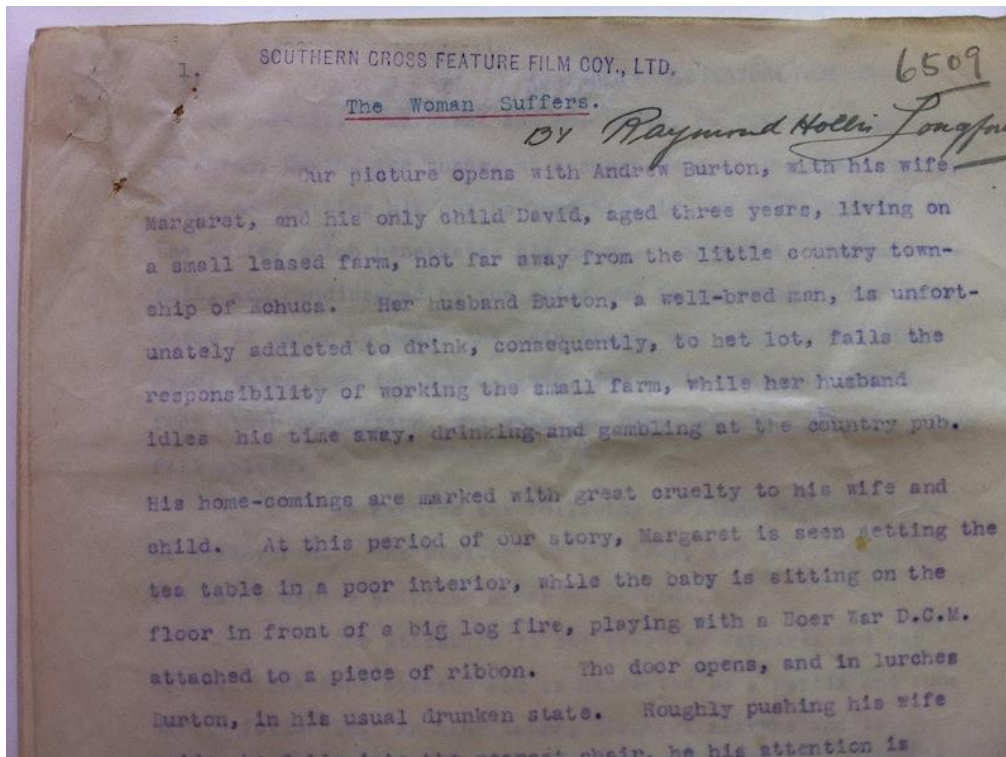 1.
SOUTHERN CROSS FEATURE FILM COY., LTD.
6509
The Woman Suffers.
BY Raymond Hollis Longfor
Our picture opens with Andrew Burton, with his wife
Margaret, and his only child David, aged three years, living on
a small leased farm, not far away from the little country town-
ship of Echuca. Her husband Burton, a well-bred man, is unfort-
unately addicted to drink, consequently, to het lot, falls the
responsibility of working the small farm, while her husband
idles his time away, drinking and gambling at the country pub.
His home-comings are marked with great cruelty to his wife and
child. At this period of our story, Margaret is seen setting the
tea table in a poor interior, while the baby is sitting on the
floor in front of a big log fire, playing with a Boer War D.C.M.
attached to a piece of ribbon. The door opens, and in lurches
Burton, in his usual drunken state. Roughly pushing his wife
chair, he his attention is